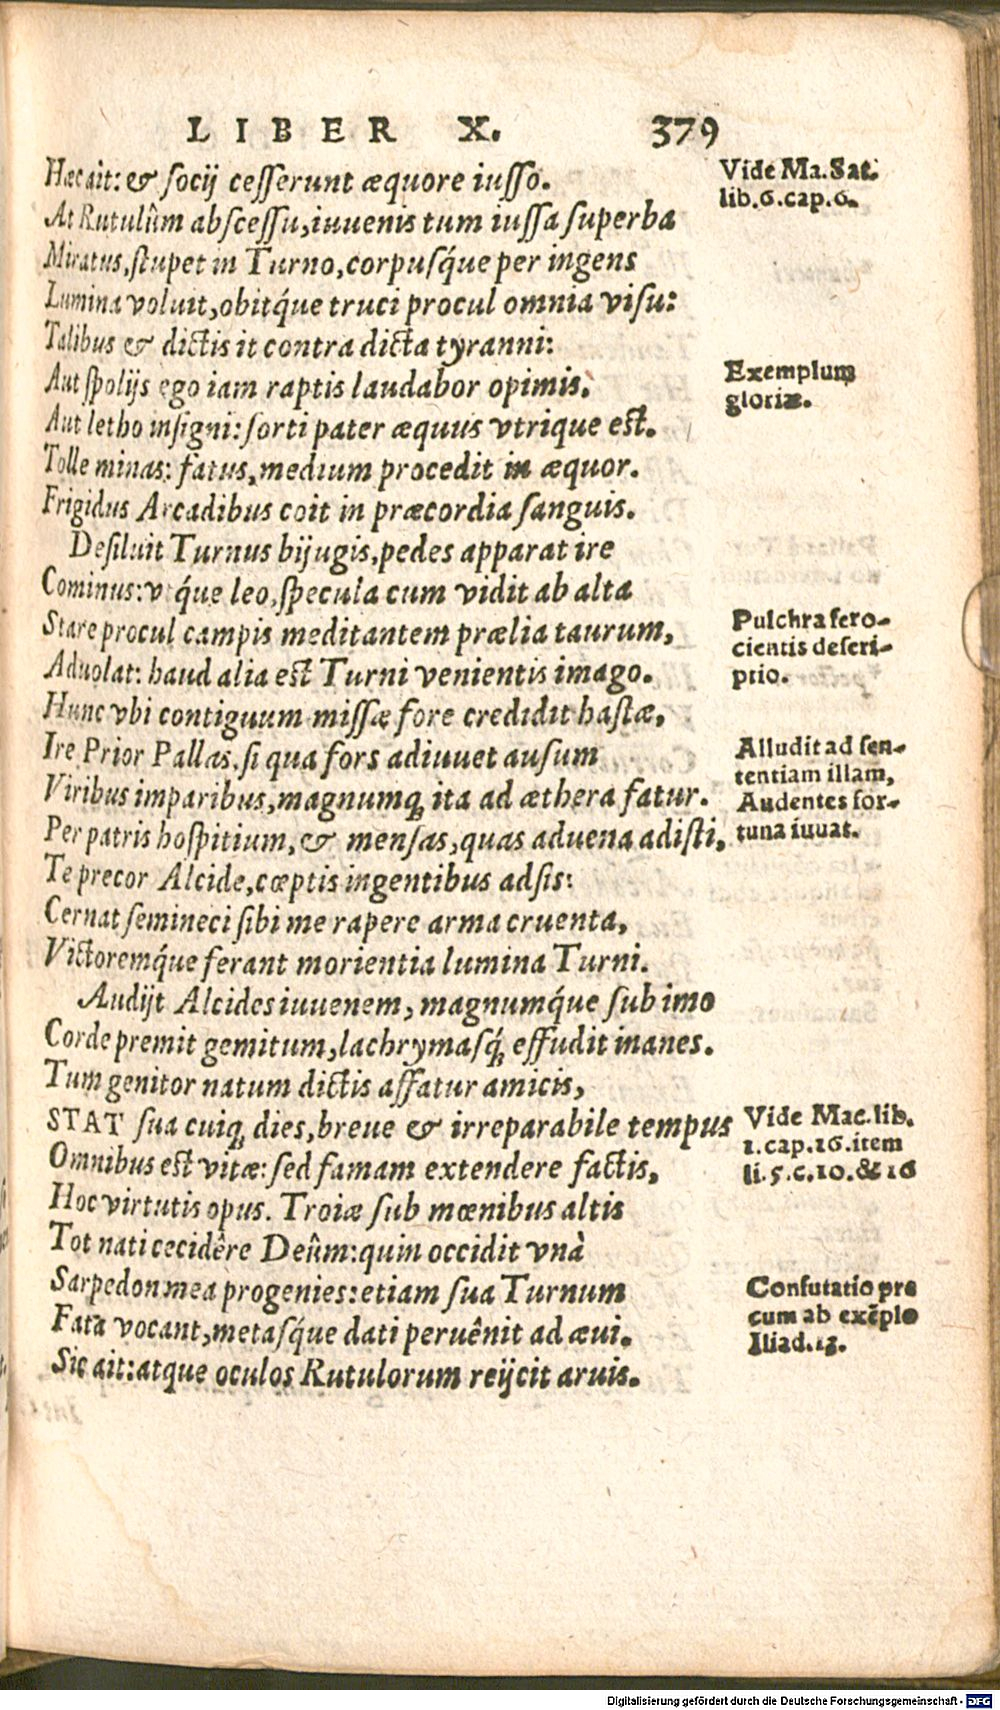 LIBER X. 379
Hæc ait: & socij cesserunt æquore iusso.
At Rutulûm abscessu, iuuenis tum iussa superba
Miratus, stupet in Turno, corpusq́ue per ingens
Lumina voluit, obitq́ue truci procul omnia visu:
Talibus & dictis it contra dicta tyranni:
Aut spolijs ego iam raptis laudabor opimis,
Aut letho insigni: sorti pater æquus vtrique est.
Tolle minas: fatus, medium procedit in æquor.
Frigidus Arcadibus coit in præcordia sanguis.
Desiluit Turnus bijugis, pedes apparat ire
Cominus: vtq́ue leo, specula cum vidit ab alta
Stare procul campis meditantem prælia taurum,
Aduolat: haud alia est Turni venientis imago.
Hunc vbi contiguum missæ fore credidit hastæ,
Ire Prior Pallas, si qua fors adiuuet ausum
Viribus imparibus, magnumq; ita ad æthera fatur.
Per patris hospitium, & mensas, quas aduena adisti,
Te precor Alcide, cœptis ingentibus adsis:
Cernat semineci sibi me rapere arma cruenta,
Victoremq́ue ferant morientia lumina Turni.
Audijt Alcides iuuenem, magnumq́ue sub imo
Corde premit gemitum, lachrymasq́; effudit inanes.
Tum genitor natum dictis affatur amicis,
STAT sua cuiq; dies, breue & irreparabile tempus
Omnibus est vitæ: sed famam extendere factis,
Hoc virtutis opus. Troiæ sub mœnibus altis
Tot nati cecidêre Deûm: quin occidit vnà
Sarpedon mea progenies: etiam sua Turnum
Fata vocant, metasq́ue dati peruênit ad æui.
Sic ait: atque oculos Rutulorum reijcit aruis.
Vide Ma. Sat.
lib. 6. cap. 6.
Exemplum
gloriæ.
Pulchra fero-
cientis descri-
ptio.
Alludit ad sen-
tentiam illam,
Audentes for-
tuna iuuat.
Vide Mac. lib.
1. cap. 16. item
li. 5. c. 10. & 16
Confutatio pre
cum ab exẽplo
Iliad. 13.
Digitalisierung gefördert durch die Deutsche Forschungsgemeinschaft - DFG